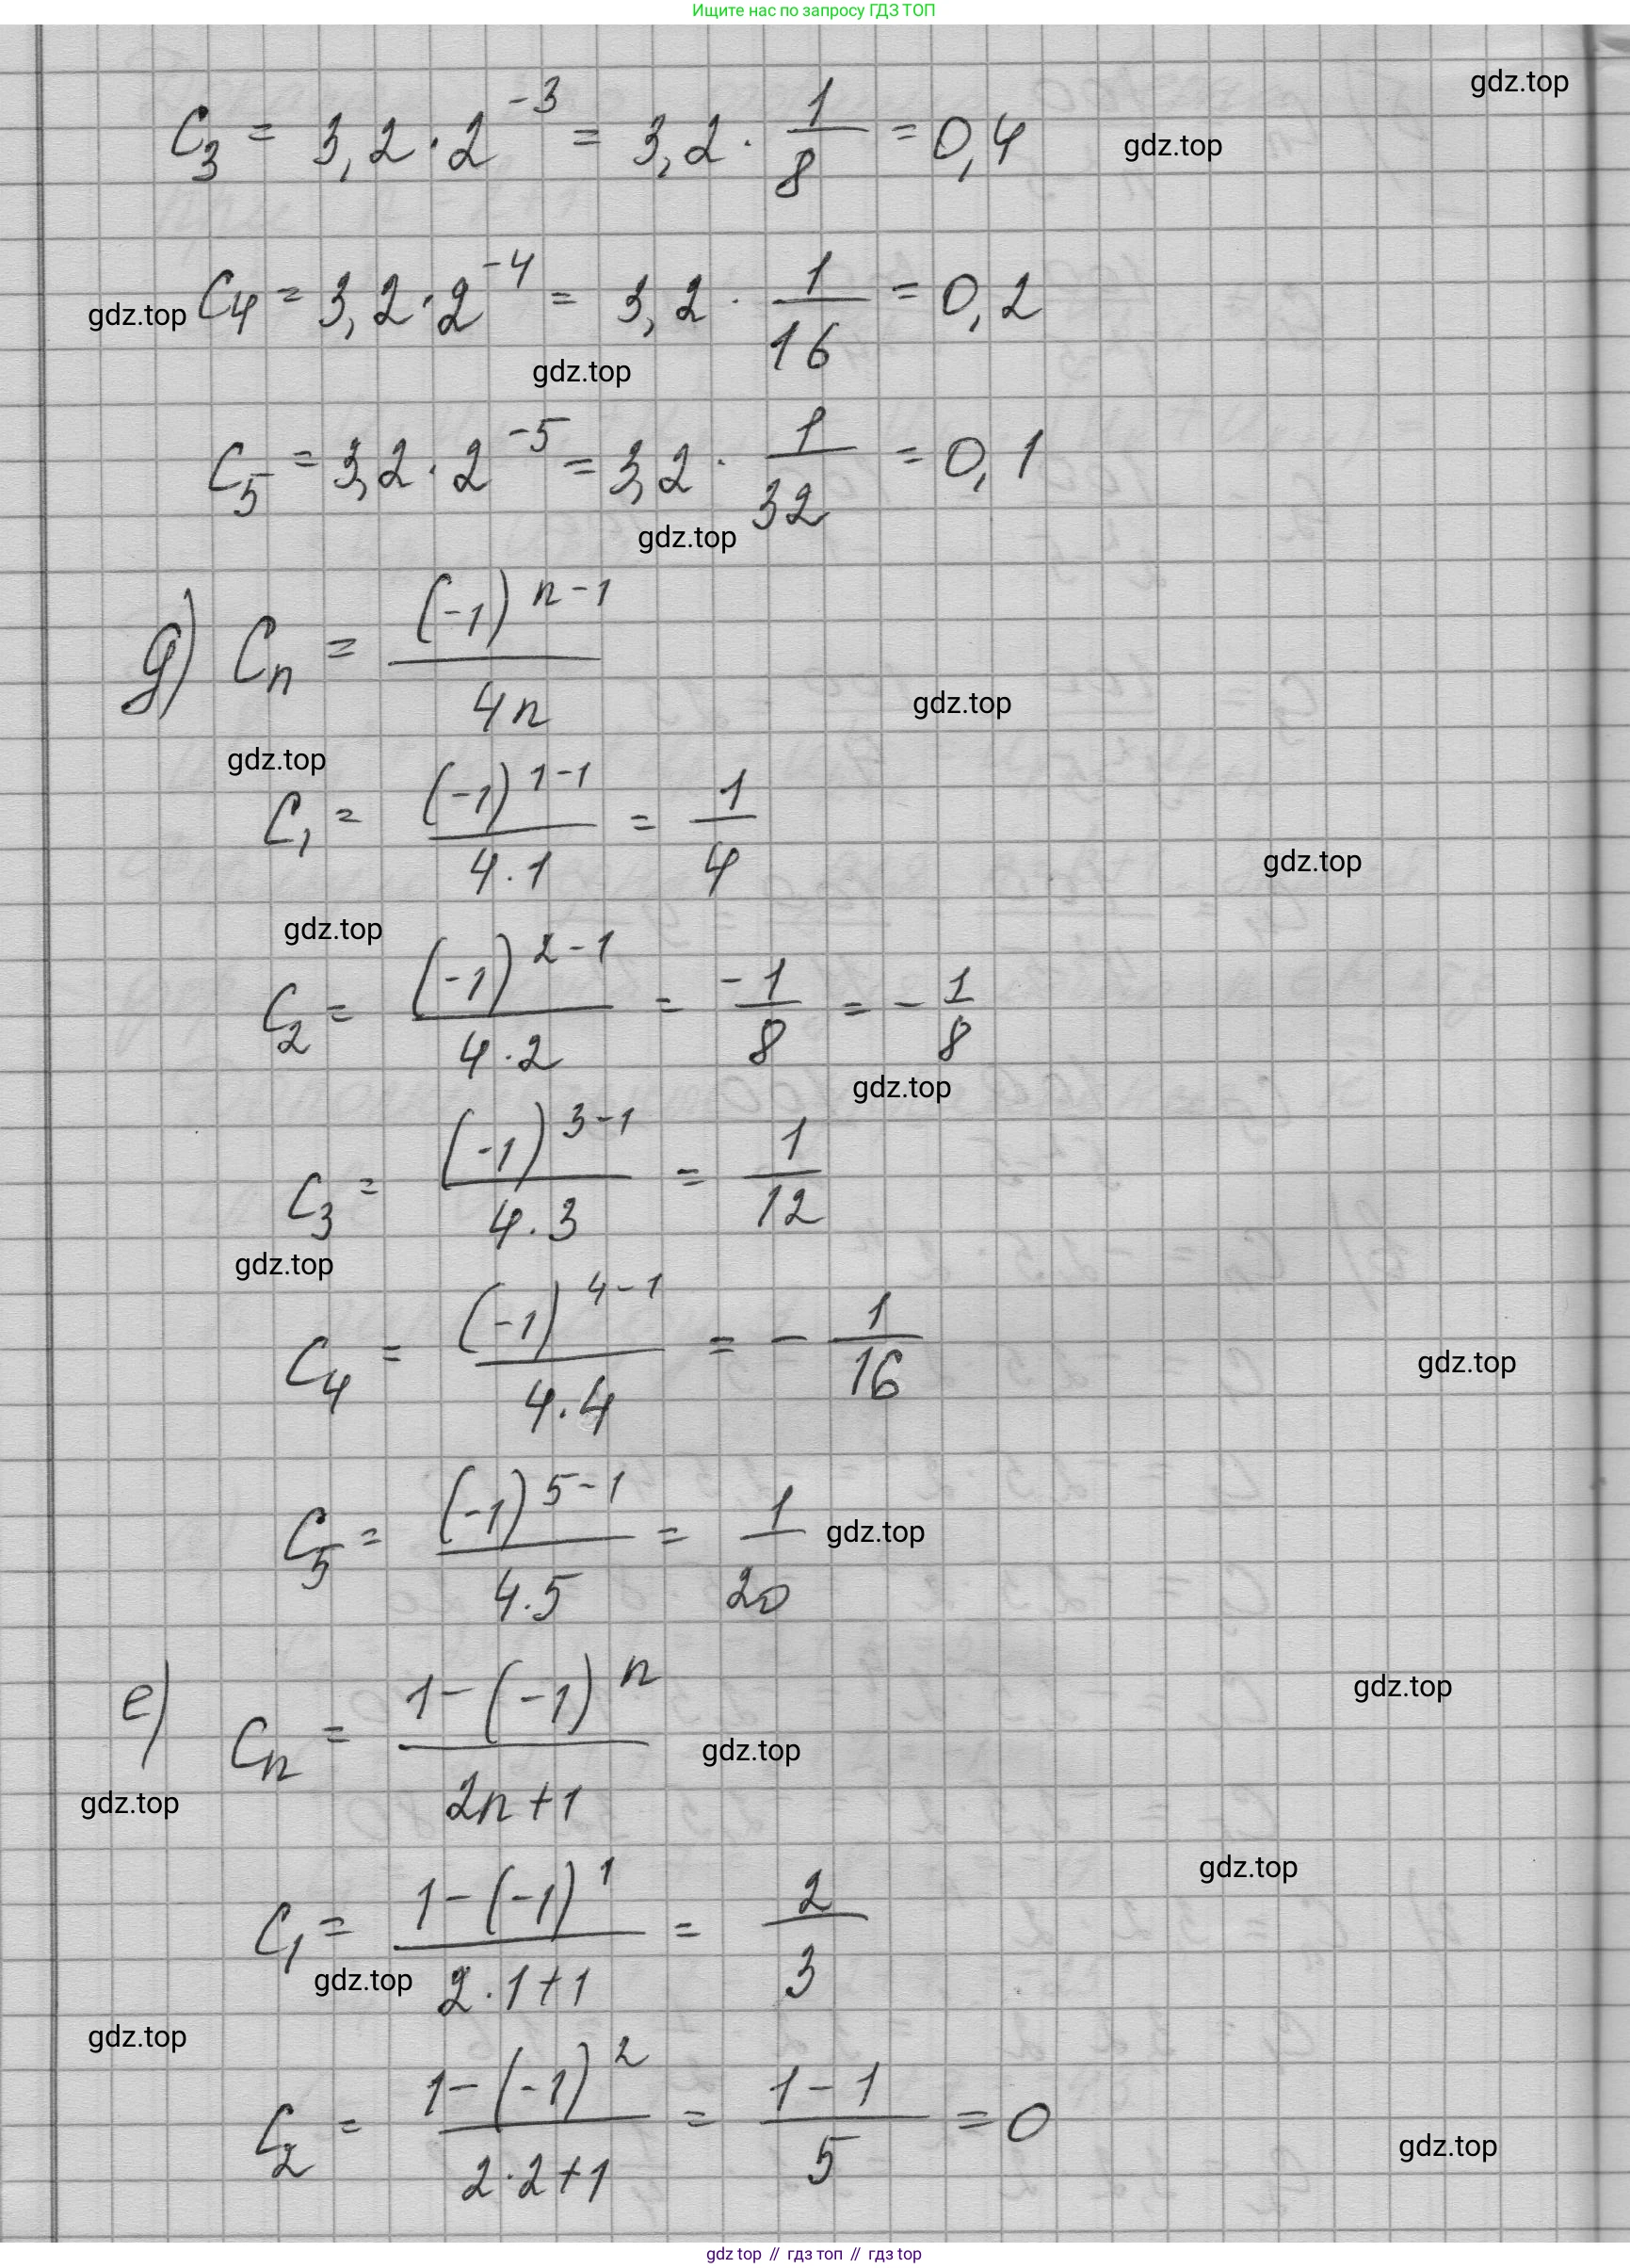 Ищите нас по запросу ГДЗ ТОП
gdz.top
C₃ = 3,2 · 2⁻³ = 3,2 · 1/8 = 0,4 gdz.top
gdz.top C₄ = 3,2 · 2⁻⁴ = 3,2 · 1/16 = 0,2
gdz.top
C₅ = 3,2 · 2⁻⁵ = 3,2 · 1/32 = 0,1
gdz.top
д) Cₙ = (-1)ⁿ⁻¹/4n
gdz.top
gdz.top
C₁ = (-1)¹⁻¹/4·1 = 1/4
gdz.top
gdz.top
C₂ = (-1)²⁻¹/4·2 = -1/8 = - 1/8
gdz.top
C₃ = (-1)³⁻¹/4·3 = 1/12
gdz.top
C₄ = (-1)⁴⁻¹/4·4 = - 1/16
gdz.top
C₅ = (-1)⁵⁻¹/4·5 = 1/20 gdz.top
gdz.top
е) Cₙ = 1-(-1)ⁿ/2n+1
gdz.top
gdz.top
gdz.top
C₁ = 1-(-1)¹/2·1+1 = 2/3
gdz.top
gdz.top
C₂ = 1-(-1)²/2·2+1 = 1-1/5 = 0
gdz.top
gdz top // гдз топ // гдз top